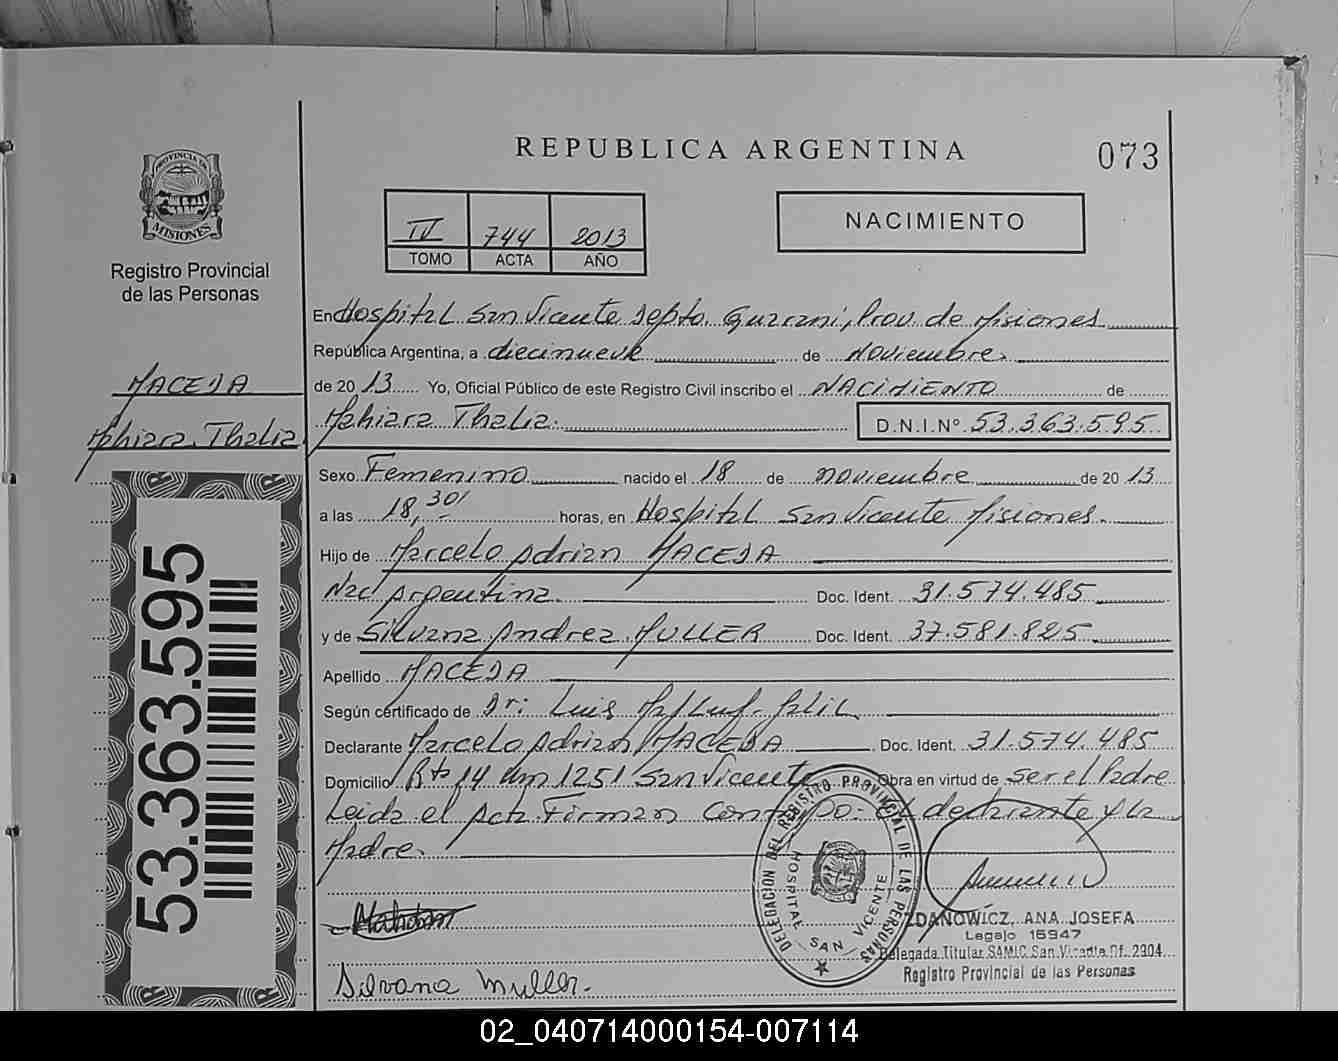 REPUBLICA ARGENTINA
073
PROVINCIA DE
MISIONES
Registro Provincial
de las Personas
IV 744 2013
TOMO ACTA AÑO
NACIMIENTO
En Hospital San Vicente Depto. Guarani, Prov. de Misiones
República Argentina, a diecinueve de Noviembre.
de 2013 Yo, Oficial Público de este Registro Civil inscribo el NACIMIENTO de
Mahiara Thalia. D.N.I.Nº 53.363.595
MACEDA
Mahiara Thalia
Sexo Femenino nacido el 18 de noviembre de 2013
a las 18,30' horas, en Hospital San Vicente Misiones.
Hijo de Marcelo Adrian MACEDA
Nac Argentina Doc. Ident. 31.574.485
y de Silvana Andrea MULLER Doc. Ident. 37.581.825
Apellido MACEDA
Según certificado de Dr: Luis
Declarante Marcelo Adrian MACEDA Doc. Ident. 31.574.485
Domicilio Rta 14 Km 1251 San Vicente Obra en virtud de ser el Padre
Leida el Acta Firman Conmigo: El declarante y la
Madre.
53.363.595
DELEGACION DEL REGISTRO PROVINCIAL DE LAS PERSONAS
HOSPITAL SAN VICENTE
ZDANOWICZ, ANA JOSEFA
Legajo 15947
Delegada Titular SAMIC San Vicente Of. 2304
Registro Provincial de las Personas
Silvana Muller.
02_040714000154-007114